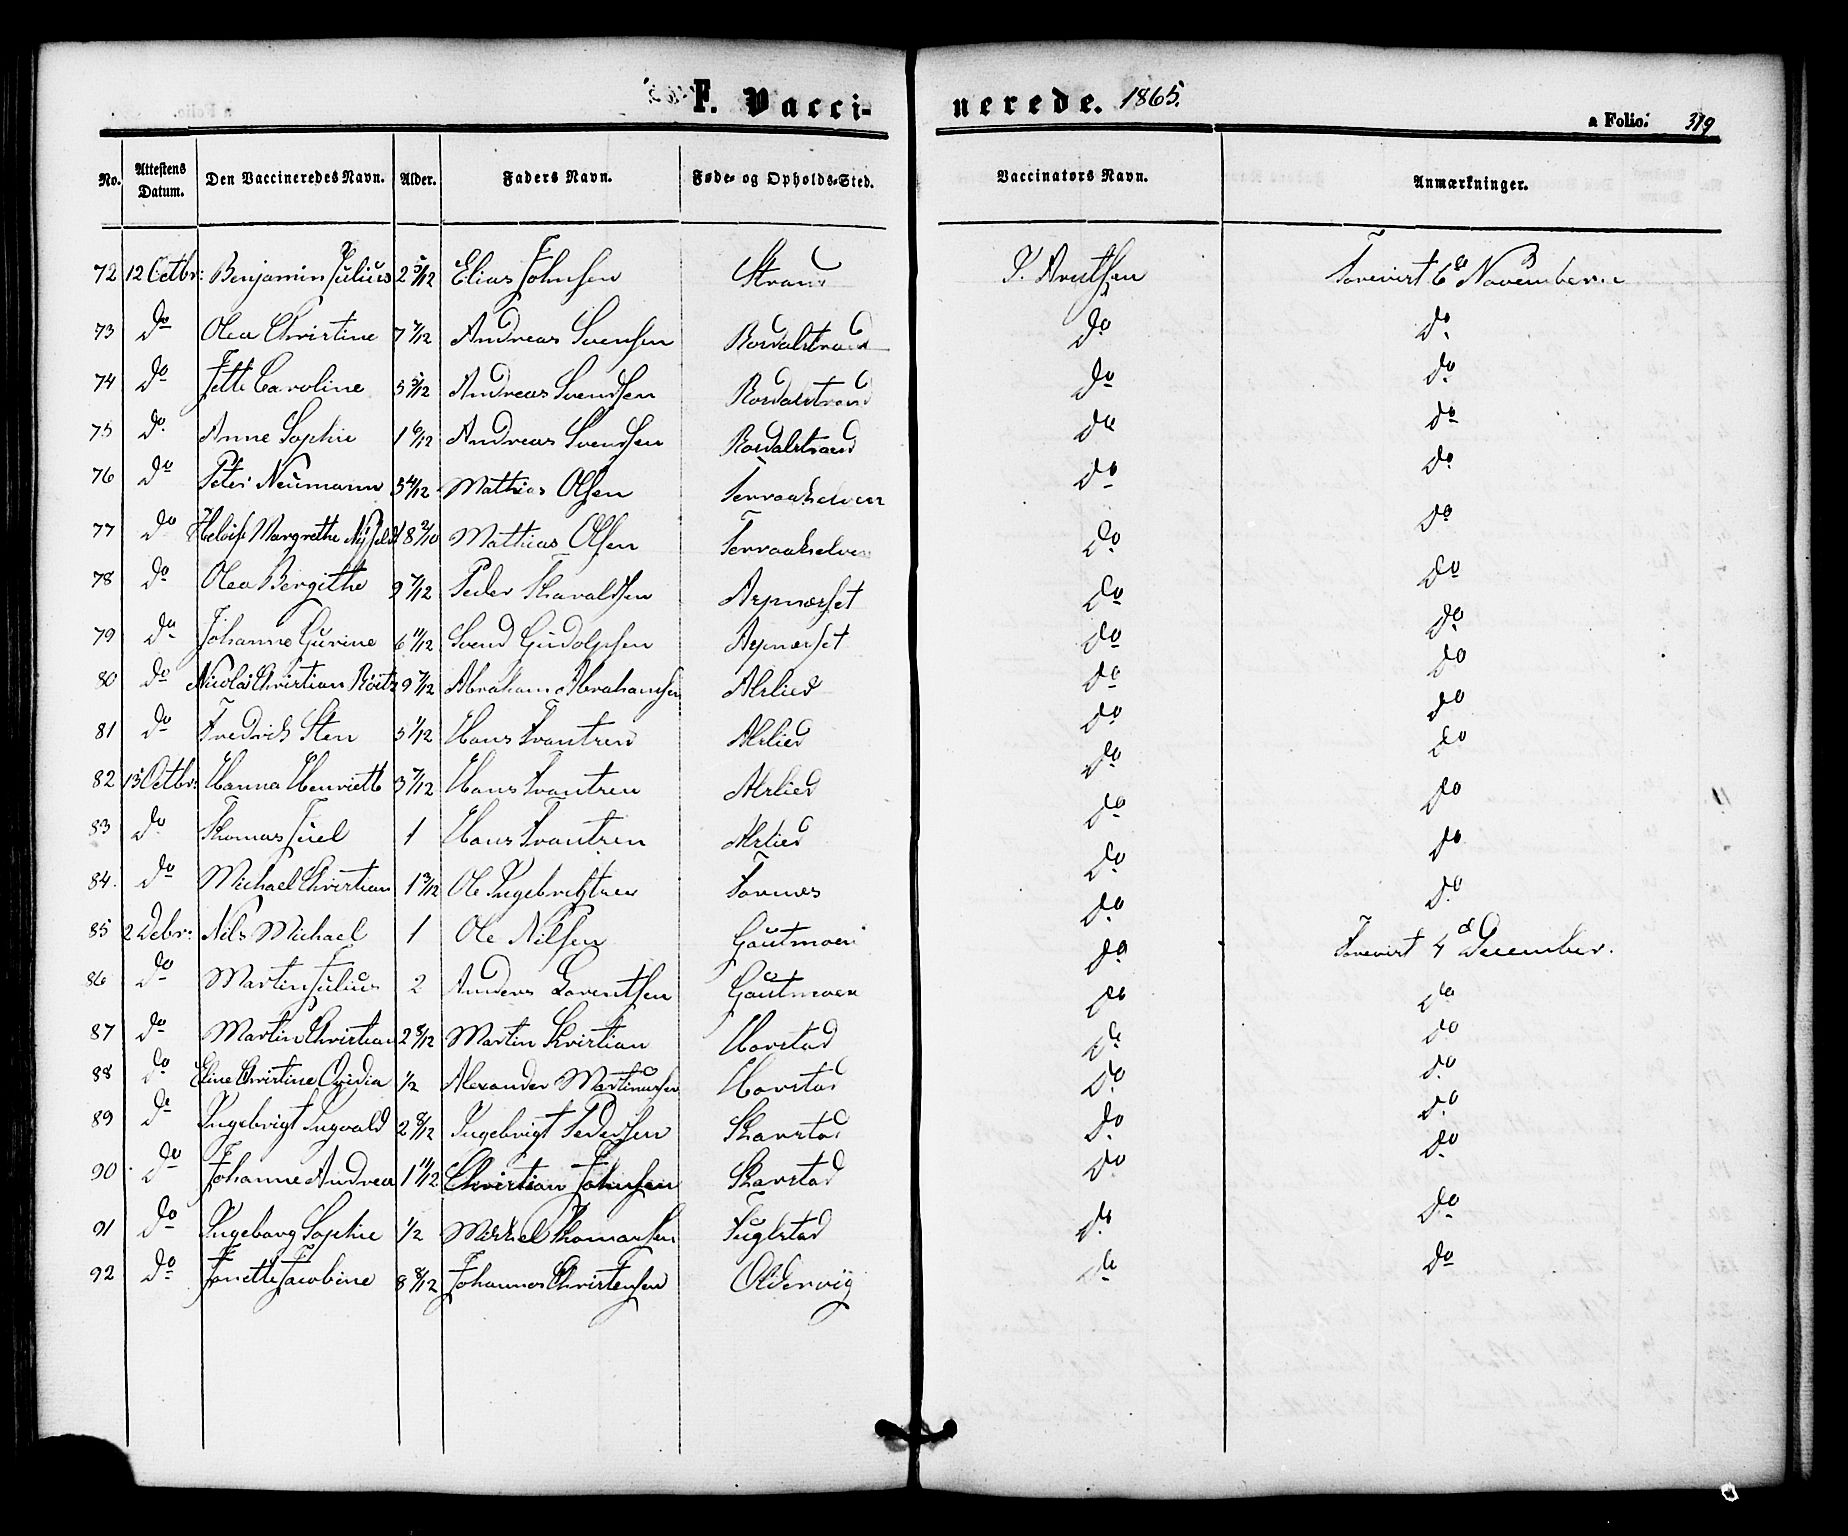 F. Vaccinerede. 1865.
a Folio: 319
No. Attestens Datum. Den Vaccineredes Navn. Alder. Faders Navn. Føde- og Opholds-Sted. Vaccinators Navn. Anmærkninger.
72 12 Octbr: Benjamin Julius 2 5/12 Elias Johnsen Strand Forevist 6 d November
73 do Olea Christine 7 7/12 Andreas Svensen do do
74 do Jette Caroline 5 5/12 Andreas Svendsen do do
75 do Anne Sophie 1 6/12 Andreas Svendsen do do
76 do Peter Neumann Mathias Olsen do do
77 do Margrethe Mathias Olsen do do
78 do Olea Bergithe 9 7/12 Peder Tharaldsen do do
79 do Johanne Gurine 6 11/12 Svend Gudolphsen do do
80 do Nicolai Christian 9 7/12 Abraham Abrahamsen Alslied do do
81 do Fredrik Sten 5 1/12 Hans Frantzen Alslied do do
82 13 Octbr: Hanna Henriette 3 7/12 Hans Frantzen Alslied do do
83 do Thomas Juel 1 Hans Frantzen Alslied do do
84. do Michael Christian 1 3/12 Ole Ingebrigtsen do do
85 2 Debr: Nils Michael 1 Ole Nilsen Gautmoen do Forevist 4 d December.
86 do Martin Julius 2 Anders Lorentsen Gautmoen do do
87 do Martin Christian 2 8/12 Martin Christian Horstad do do
88 do Eline Christine Ovidia 1/2 Alexander Martinussen Horstad do do
89 do Ingebrigt Ingvald 2 8/12 Ingebrigt Pedersen Skarstad do do
90 do Johanne Andrea 1 11/12 Christian Johnsen Skarstad do do
91 do Ingeborg Sophie 1/2 Mikkel Thomassen Fuglstad do do
92 do Jonette Jacobine 8 8/12 Johannes Christensen Oldervig do do